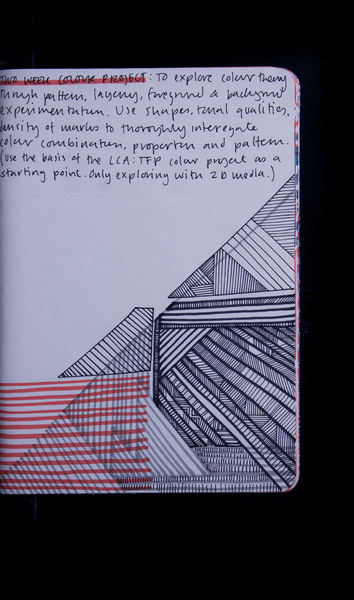 TWO WEEK COLOUR PROJECT: To explore colour theory
through pattern, layering, foreground & background
experimentation. Use shapes, tonal qualities,
density of marks to thoroughly interegate
colour combination, proportion and pattern.
(use the basis of the LCA: TFP colour project as a
starting point. Only exploring with 2D media.)